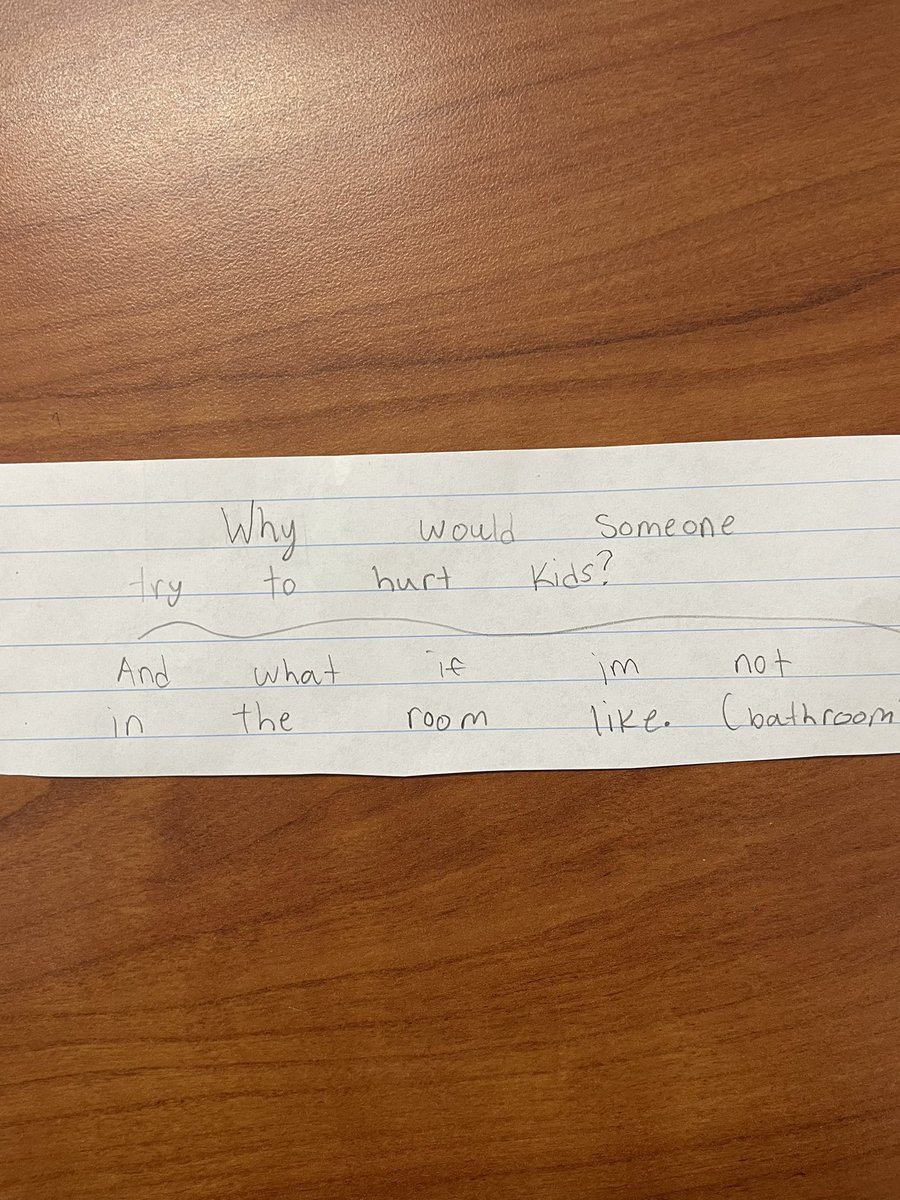 Why would Someone
try to hurt kids?
And what if im not
in the room like. (bathroom